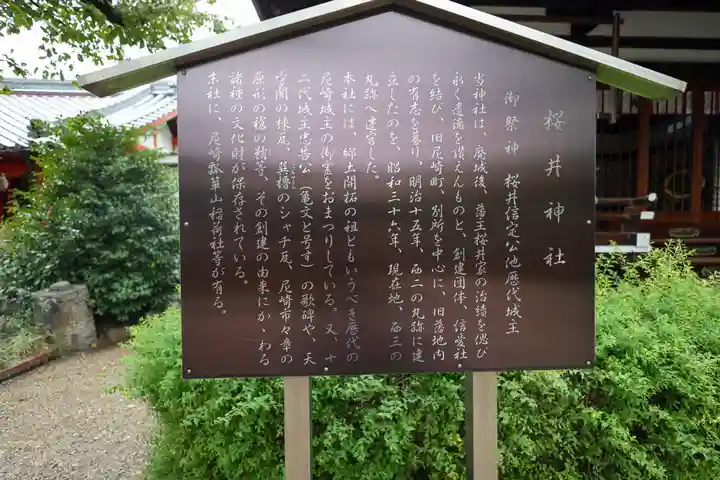 桜井神社
御祭神 桜井信定公他歴代城主
当神社は、廃城後、藩主桜井家の治績を偲び
永く遺徳を讃えんものと、創建団体、信愛社
を結び、旧尼崎町、別所を中心に、旧藩地内
の有志を募り、明治十五年、西二の丸跡に建
立したのを、昭和三十六年、現在地、西三の
丸跡へ遷宮した。
本社には、郷土開拓の祖ともいうべき歴代の
尼崎城主の御霊をおまつりしている。又、十
二代城主忠告公(亀文と号す)の歌碑や、天
守閣の棟瓦、巽櫓のシャチ瓦、尼崎市々章の
原形の櫓の積等、その創建の由来にかゝわる
諸種の文化財が保存されている。
末社に、尼崎瓢箪山稲荷社等が有る。